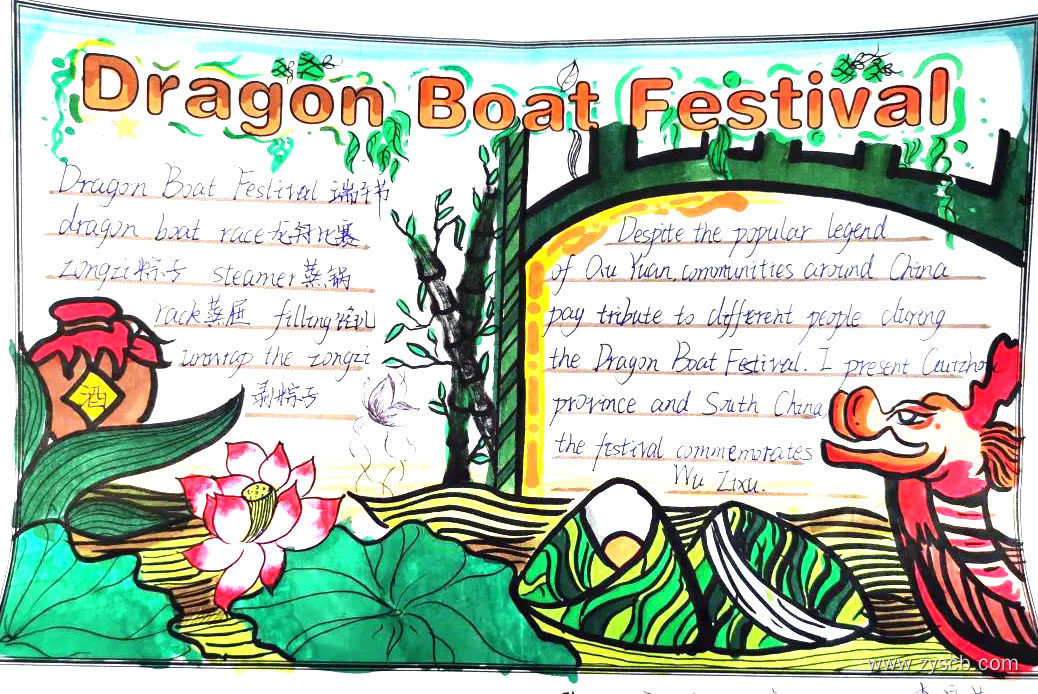 Dragon Boat Festival
Dragon Boat Festival 端午节
dragon boat race 龙舟比赛
zongzi 粽子 steamer 蒸锅
rack 蒸屉 filling
unwrap the zongzi
剥粽子
酒
Despite the popular legend
of Qu Yuan, communities around China
pay tribute to different people during
the Dragon Boat Festival. I present
province and South China,
the festival commemorates
Wu Zixu.
www.zyscb.com